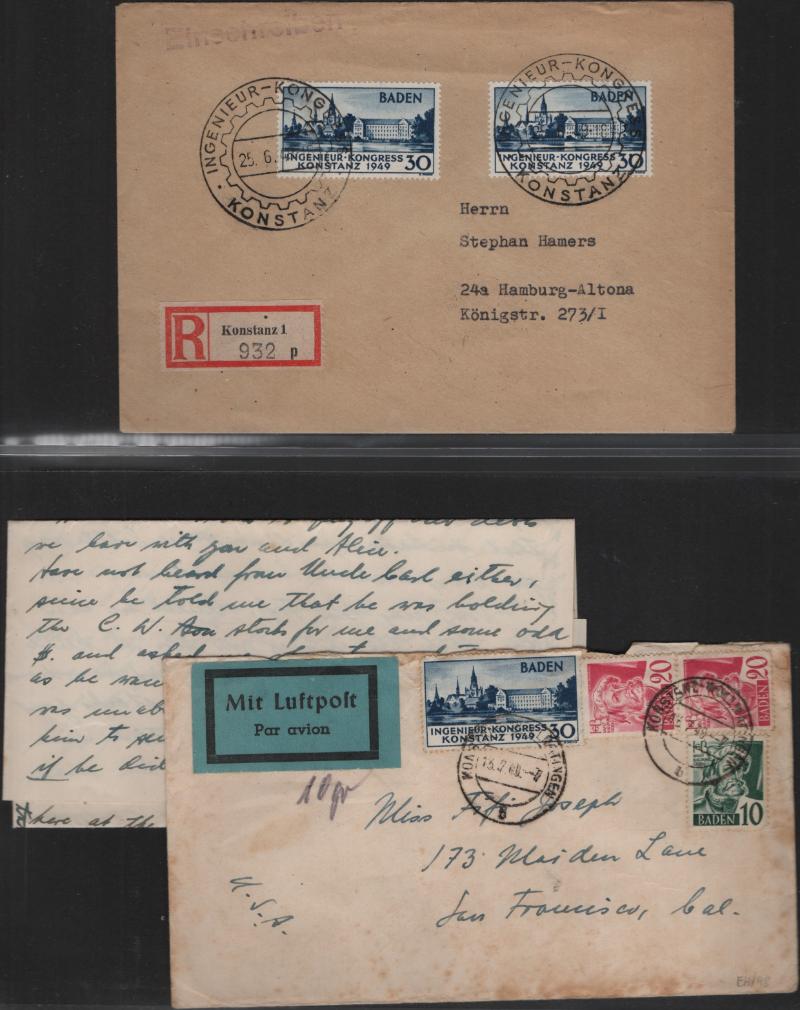 Einschreiben
INGENIEUR-KONGRESS
KONSTANZ
25.6.
BADEN
INGENIEUR-KONGRESS
KONSTANZ 1949 30
INGENIEUR-KONGRESS
KONSTANZ
BADEN
INGENIEUR-KONGRESS
KONSTANZ 1949 30
Herrn
Stephan Hamers
24a Hamburg-Altona
Königstr. 273/I
R Konstanz 1
932 p
we have with you and Alice.
Have not heard from Uncle Carl either,
since he told me that he was holding
the C. W. stock for me and some odd
$. and asked me
as he
was
him to
if he did
here at the
Mit Luftpost
Par avion
BADEN
INGENIEUR-KONGRESS
KONSTANZ 1949 30
20
20
BADEN
10
BADEN
KONSTANZ
10 gr
Miss Joseph
173 Maiden Lane
San Francisco, Cal.
U.S.A.